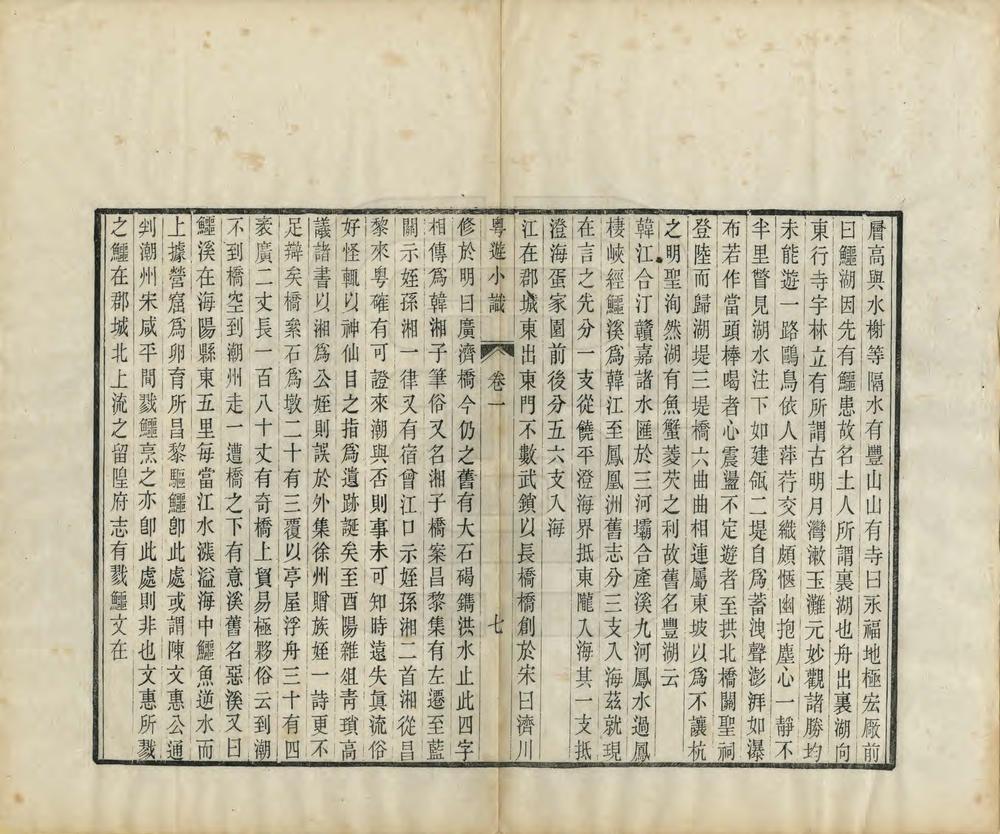 層高與水榭等隔水有豐山山有寺曰永福地極宏厰前
曰鱷湖因先有鱷患故名土人所謂裏湖也舟出裏湖向
東行寺宇林立有所謂古明月灣漱玉灘元妙觀諸勝均
未能遊一路鷗鳥依人萍荇交織頗愜幽抱塵心一靜不
半里瞥見湖水注下如建瓴二堤自爲蓄洩聲澎湃如瀑
布若作當頭棒喝者心震盪不定遊者至拱北橋關聖祠
登陸而歸湖堤三堤橋六曲曲相連屬東坡以爲不讓杭
之明聖洵然湖有魚蟹菱芡之利故舊名豐湖云
韓江合汀贛嘉諸水匯於三河壩合產溪九河鳳水過鳳
棲峽經鱷溪爲韓江至鳳凰洲舊志分三支入海茲就現
在言之先分一支從饒平澄海界抵東隴入海其一支抵
澄海蛋家園前後分五六支入海
江在郡城東出東門不數武鎖以長橋橋創於宋曰濟川
粵遊小識 卷一 七
修於明曰廣濟橋今仍之舊有大石碣鐫洪水止此四字
相傳爲韓湘子筆俗又名湘子橋案昌黎集有左遷至藍
關示姪孫湘一律又有宿曾江口示姪孫湘二首湘從昌
黎來粵確有可證來潮與否則事未可知時遠失眞流俗
好怪輒以神仙目之指爲遺跡誕矣至酉陽雜俎靑瑣高
議諸書以湘爲公姪則誤於外集徐州贈族姪一詩更不
足辯矣橋絫石爲墩二十有三覆以亭屋浮舟三十有四
袤廣二丈長一百八十丈有奇橋上貿易極夥俗云到潮
不到橋空到潮州走一遭橋之下有意溪舊名惡溪又曰
鱷溪在海陽縣東五里每當江水漲溢海中鱷魚逆水而
上據營窟爲卵育所昌黎驅鱷卽此處或謂陳文惠公通
判潮州宋咸平間戮鱷烹之亦卽此處則非也文惠所戮
之鱷在郡城北上流之留隍府志有戮鱷文在